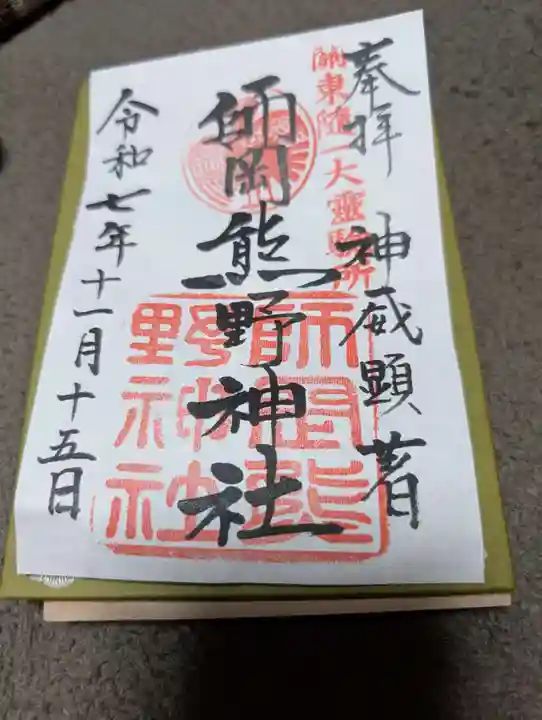 奉拝
神威顕著
關東随一大靈驗所
師岡熊野神社
師岡熊
野神社
令和七年十一月十五日